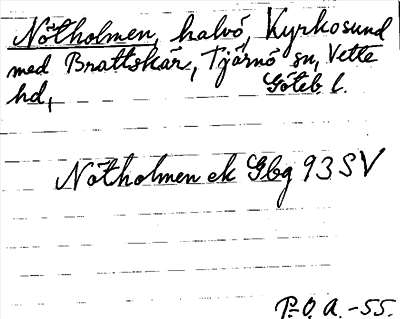 Nötholmen, halvö, Kyrkosund
med Brattskär, Tjärnö sn, Vette
hd, Göteb l.
Nötholmen ek Gbg 93 SV
P-O. A. -55.